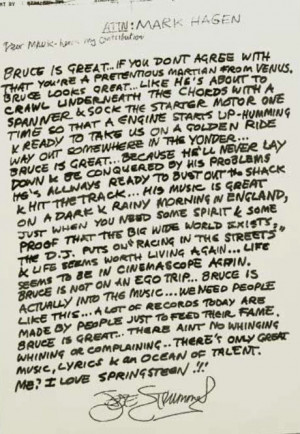 NT BY
ATTN: MARK HAGEN
Dear MARK – here's my contribution
BRUCE IS GREAT.. IF YOU DONT AGREE WITH
THAT YOU'RE A PRETENTIOUS MARTIAN FROM VENUS.
BRUCE LOOKS GREAT... LIKE HE'S ABOUT TO
CRAWL UNDERNEATH THE CHORDS WITH A
SPANNER & SOCK THE STARTER MOTOR ONE
TIME SO THAT A ENGINE STARTS UP-HUMMING
& READY TO TAKE US ON A GOLDEN RIDE
WAY OUT SOMEWHERE IN THE YONDER...
BRUCE IS GREAT... BECAUSE HE'LL NEVER LAY
DOWN & BE CONQUERED BY HIS PROBLEMS
HE'S ALLWAYS READY TO BUST OUT THE SHACK
& HIT THE TRACK... HIS MUSIC IS GREAT
ON A DARK & RAINY MORNING IN ENGLAND,
JUST WHEN YOU NEED SOME SPIRIT & SOME
PROOF THAT THE BIG WIDE WORLD EXISTS,
THE D.J. PUTS ON "RACING IN THE STREETS"
& LIFE SEEMS WORTH LIVING AGAIN... LIFE
SEEMS TO BE IN CINEMASCOPE AGAIN.
BRUCE IS NOT ON AN EGO TRIP... BRUCE IS
ACTUALLY INTO THE MUSIC.... WE NEED PEOPLE
LIKE THIS... A LOT OF RECORDS TODAY ARE
MADE BY PEOPLE JUST TO FEED THEIR FAME.
BRUCE IS GREAT... THERE AINT NO WHINGING
WHINING OR COMPLAINING.. THERE'S ONLY GREAT
MUSIC, LYRICS & AN OCEAN OF TALENT.
ME? I LOVE SPRINGSTEEN.!!
JOE STRUMMER